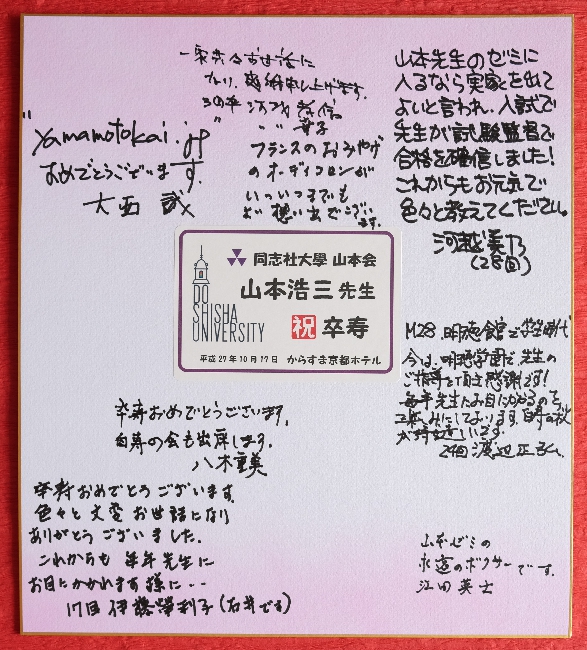 一家でお世話に
なり、感謝申し上げます。
フランスのおみやげ
のオーディコロンが
いついつまでも
よい想い出でござい
ます。
"yamamotokai.jp"
おめでとうございます。
大西 武
山本先生のゼミに
入るなら実家を出て
よいと言われ、入試で
先生が試験監督で
合格を確信しました!
これからもお元気で
色々と教えてください。
河越美乃
(28回)
同志社大學 山本会
山本浩三先生
祝 卒寿
DO
SHISHA
UNIVERSITY
平成27年10月17日 からすま京都ホテル
M28、明徳館で学生時代
今は、明徳学園で先生の
ご指導を頂き感謝です!
毎年先生にお目にかかるのを
楽しみにしております。
24回 渡辺正
卒寿おめでとうございます。
白寿の会も出席します。
八木重美
卒寿おめでとうございます。
色々と大変お世話になり
ありがとうございました。
これからも毎年先生に
お目にかかれます様に・・
17回 伊藤榮利子(石井です)
山本ゼミの
永遠のボクサーです。
江田英士